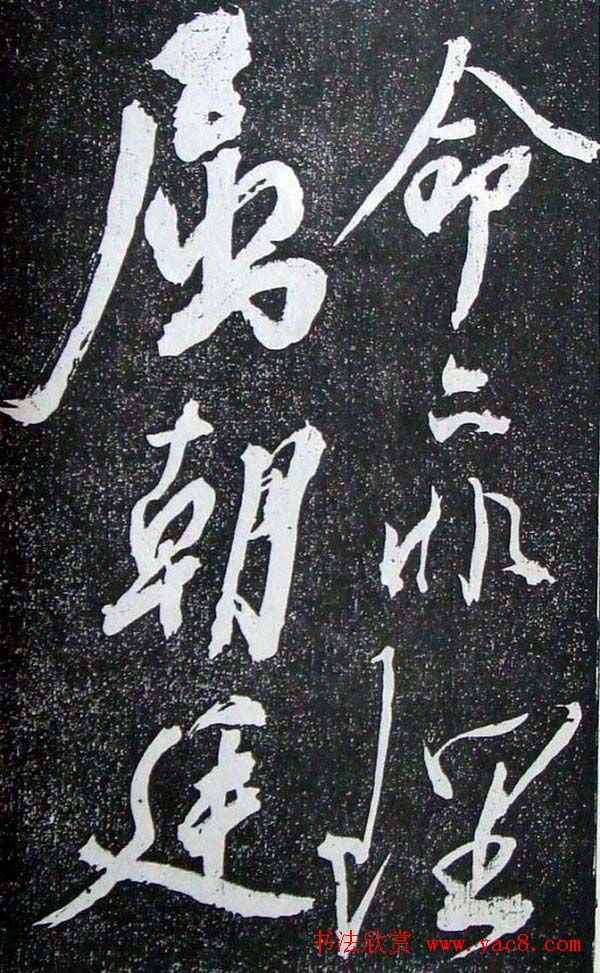 命二
属朝廷
书法欣赏 www.yac8.com